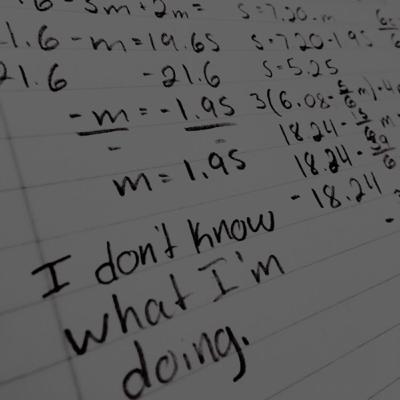 6 - 3m + 2m =
1.6 - m = 19.65
21.6 -21.6
-m = -1.95
m = 1.95
I don't know
what I'm
doing.
s = 7.20 - m
s = 7.20 - 1.95
s = 5.25
3(6.08 -
18.24 -
18.24 -
- 18.24